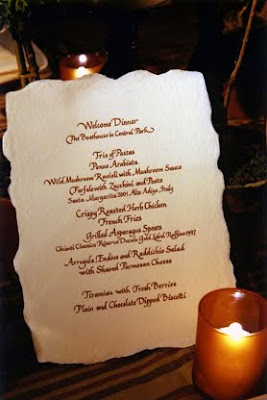 Welcome Dinner
The Boathouse in Central Park
Trio of Pastas
Penne Arabiata
Wild Mushroom Ravioli with Mushroom Sauce
Farfale with Zucchini and Pesto
Santa Margarita 2001 Alto Adige, Italy
Crispy Roasted Herb Chicken
French Fries
Grilled Asparagus Spears
Chianti Classico Reserva Ducale Gold Label Ruffino 1997
Arrugula Endive and Raddichio Salad
with Shaved Parmesan Cheese
Tiramisu with Fresh Berries
Plain and Chocolate Dipped Biscotti